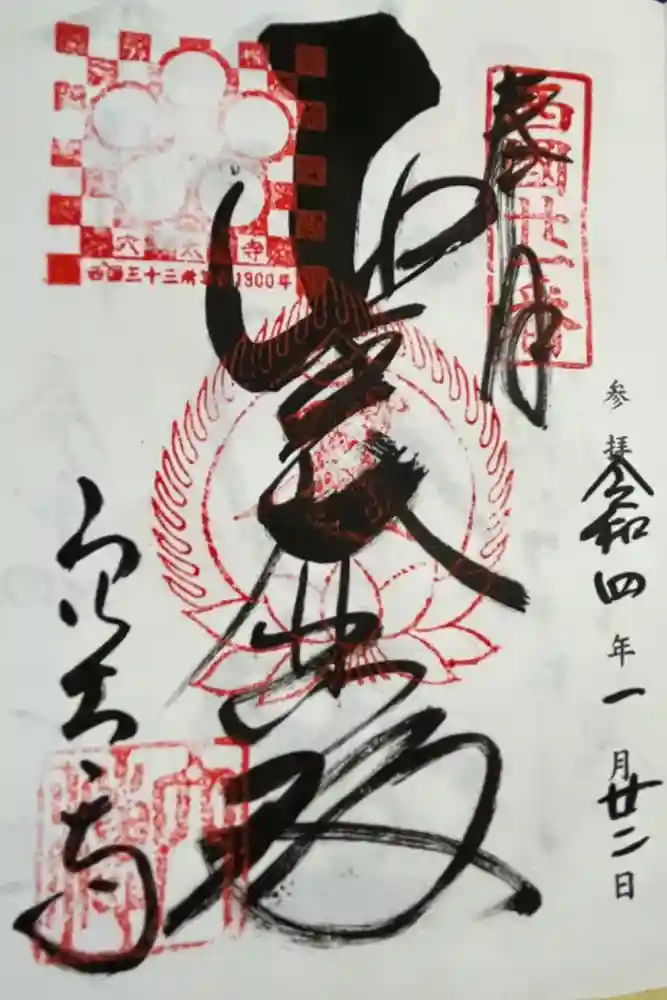 奉拝
西國廿一番
参拝 令和四年一月廿二日
聖大悲殿
穴太寺
西国三十三所草創1300年
穴太寺